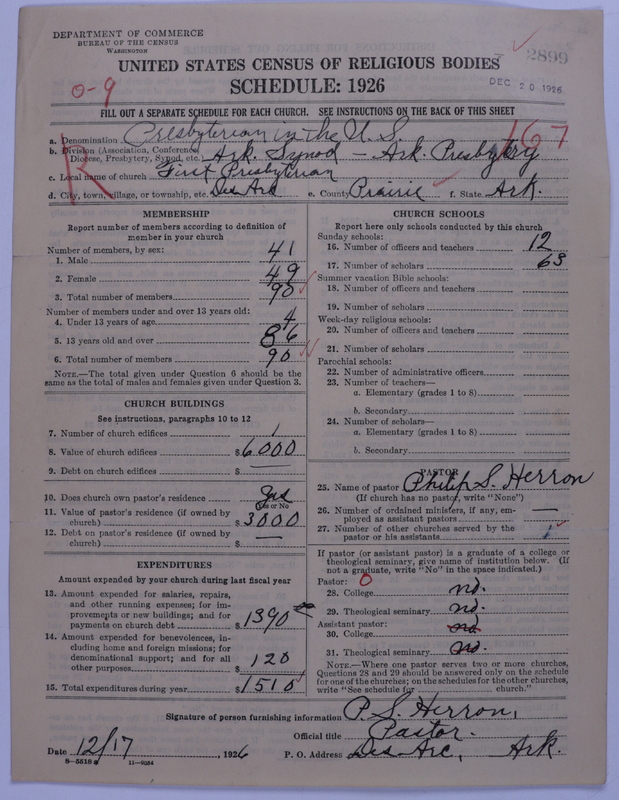 DEPARTMENT OF COMMERCE
BUREAU OF THE CENSUS
WASHINGTON
2899
UNITED STATES CENSUS OF RELIGIOUS BODIES
DEC 20 1926
SCHEDULE: 1926
0-9
FILL OUT A SEPARATE SCHEDULE FOR EACH CHURCH. SEE INSTRUCTIONS ON THE BACK OF THIS SHEET
a. Denomination Presbyterian in the U.S. 167
b. Division (Association, Conference, Diocese, Presbytery, Synod, etc. Ark. Synod - Ark. Presbytery
c. Local name of church First Presbyterian
d. City, town, village, or township, etc. Des Arc e. County Prairie f. State Ark.
MEMBERSHIP
Report number of members according to definition of
member in your church
Number of members, by sex:
1. Male 41
2. Female 49
3. Total number of members 90
Number of members under and over 13 years old:
4. Under 13 years of age 4
5. 13 years old and over 86
6. Total number of members 90
NOTE.—The total given under Question 6 should be the
same as the total of males and females given under Question 3.
CHURCH BUILDINGS
See instructions, paragraphs 10 to 12
7. Number of church edifices 1
8. Value of church edifices $6000
9. Debt on church edifices $ —
10. Does church own pastor's residence Yes
Yes or No
11. Value of pastor's residence (if owned by
church) $3000
12. Debt on pastor's residence (if owned by
church) $ —
EXPENDITURES
Amount expended by your church during last fiscal year
13. Amount expended for salaries, repairs,
and other running expenses; for im-
provements or new buildings; and for
payments on church debt $1390
14. Amount expended for benevolences, in-
cluding home and foreign missions; for
denominational support; and for all
other purposes 120
15. Total expenditures during year $1510
CHURCH SCHOOLS
Report here only schools conducted by this church
Sunday schools:
16. Number of officers and teachers 12
17. Number of scholars 63
Summer vacation Bible schools:
18. Number of officers and teachers
19. Number of scholars
Week-day religious schools:
20. Number of officers and teachers
21. Number of scholars
Parochial schools:
22. Number of administrative officers
23. Number of teachers—
a. Elementary (grades 1 to 8)
b. Secondary
24. Number of scholars—
a. Elementary (grades 1 to 8)
b. Secondary
PASTOR
25. Name of pastor Philip S. Herron
(If church has no pastor, write "None")
26. Number of ordained ministers, if any, em-
ployed as assistant pastors —
27. Number of other churches served by the
pastor or his assistants 1
If pastor (or assistant pastor) is a graduate of a college or
theological seminary, give name of institution below. (If
not a graduate, write "No" in the space indicated.)
Pastor: 0
28. College no.
29. Theological seminary no.
Assistant pastor:
30. College no
31. Theological seminary no.
NOTE.—Where one pastor serves two or more churches,
Questions 28 and 29 should be answered only on the schedule
for one of the churches; on the schedules for the other churches,
write "See schedule for church."
Signature of person furnishing information P. S. Herron,
Official title Pastor.
Date 12/17, 1926 P. O. Address Des Arc, Ark.
8-5518a 11-9034